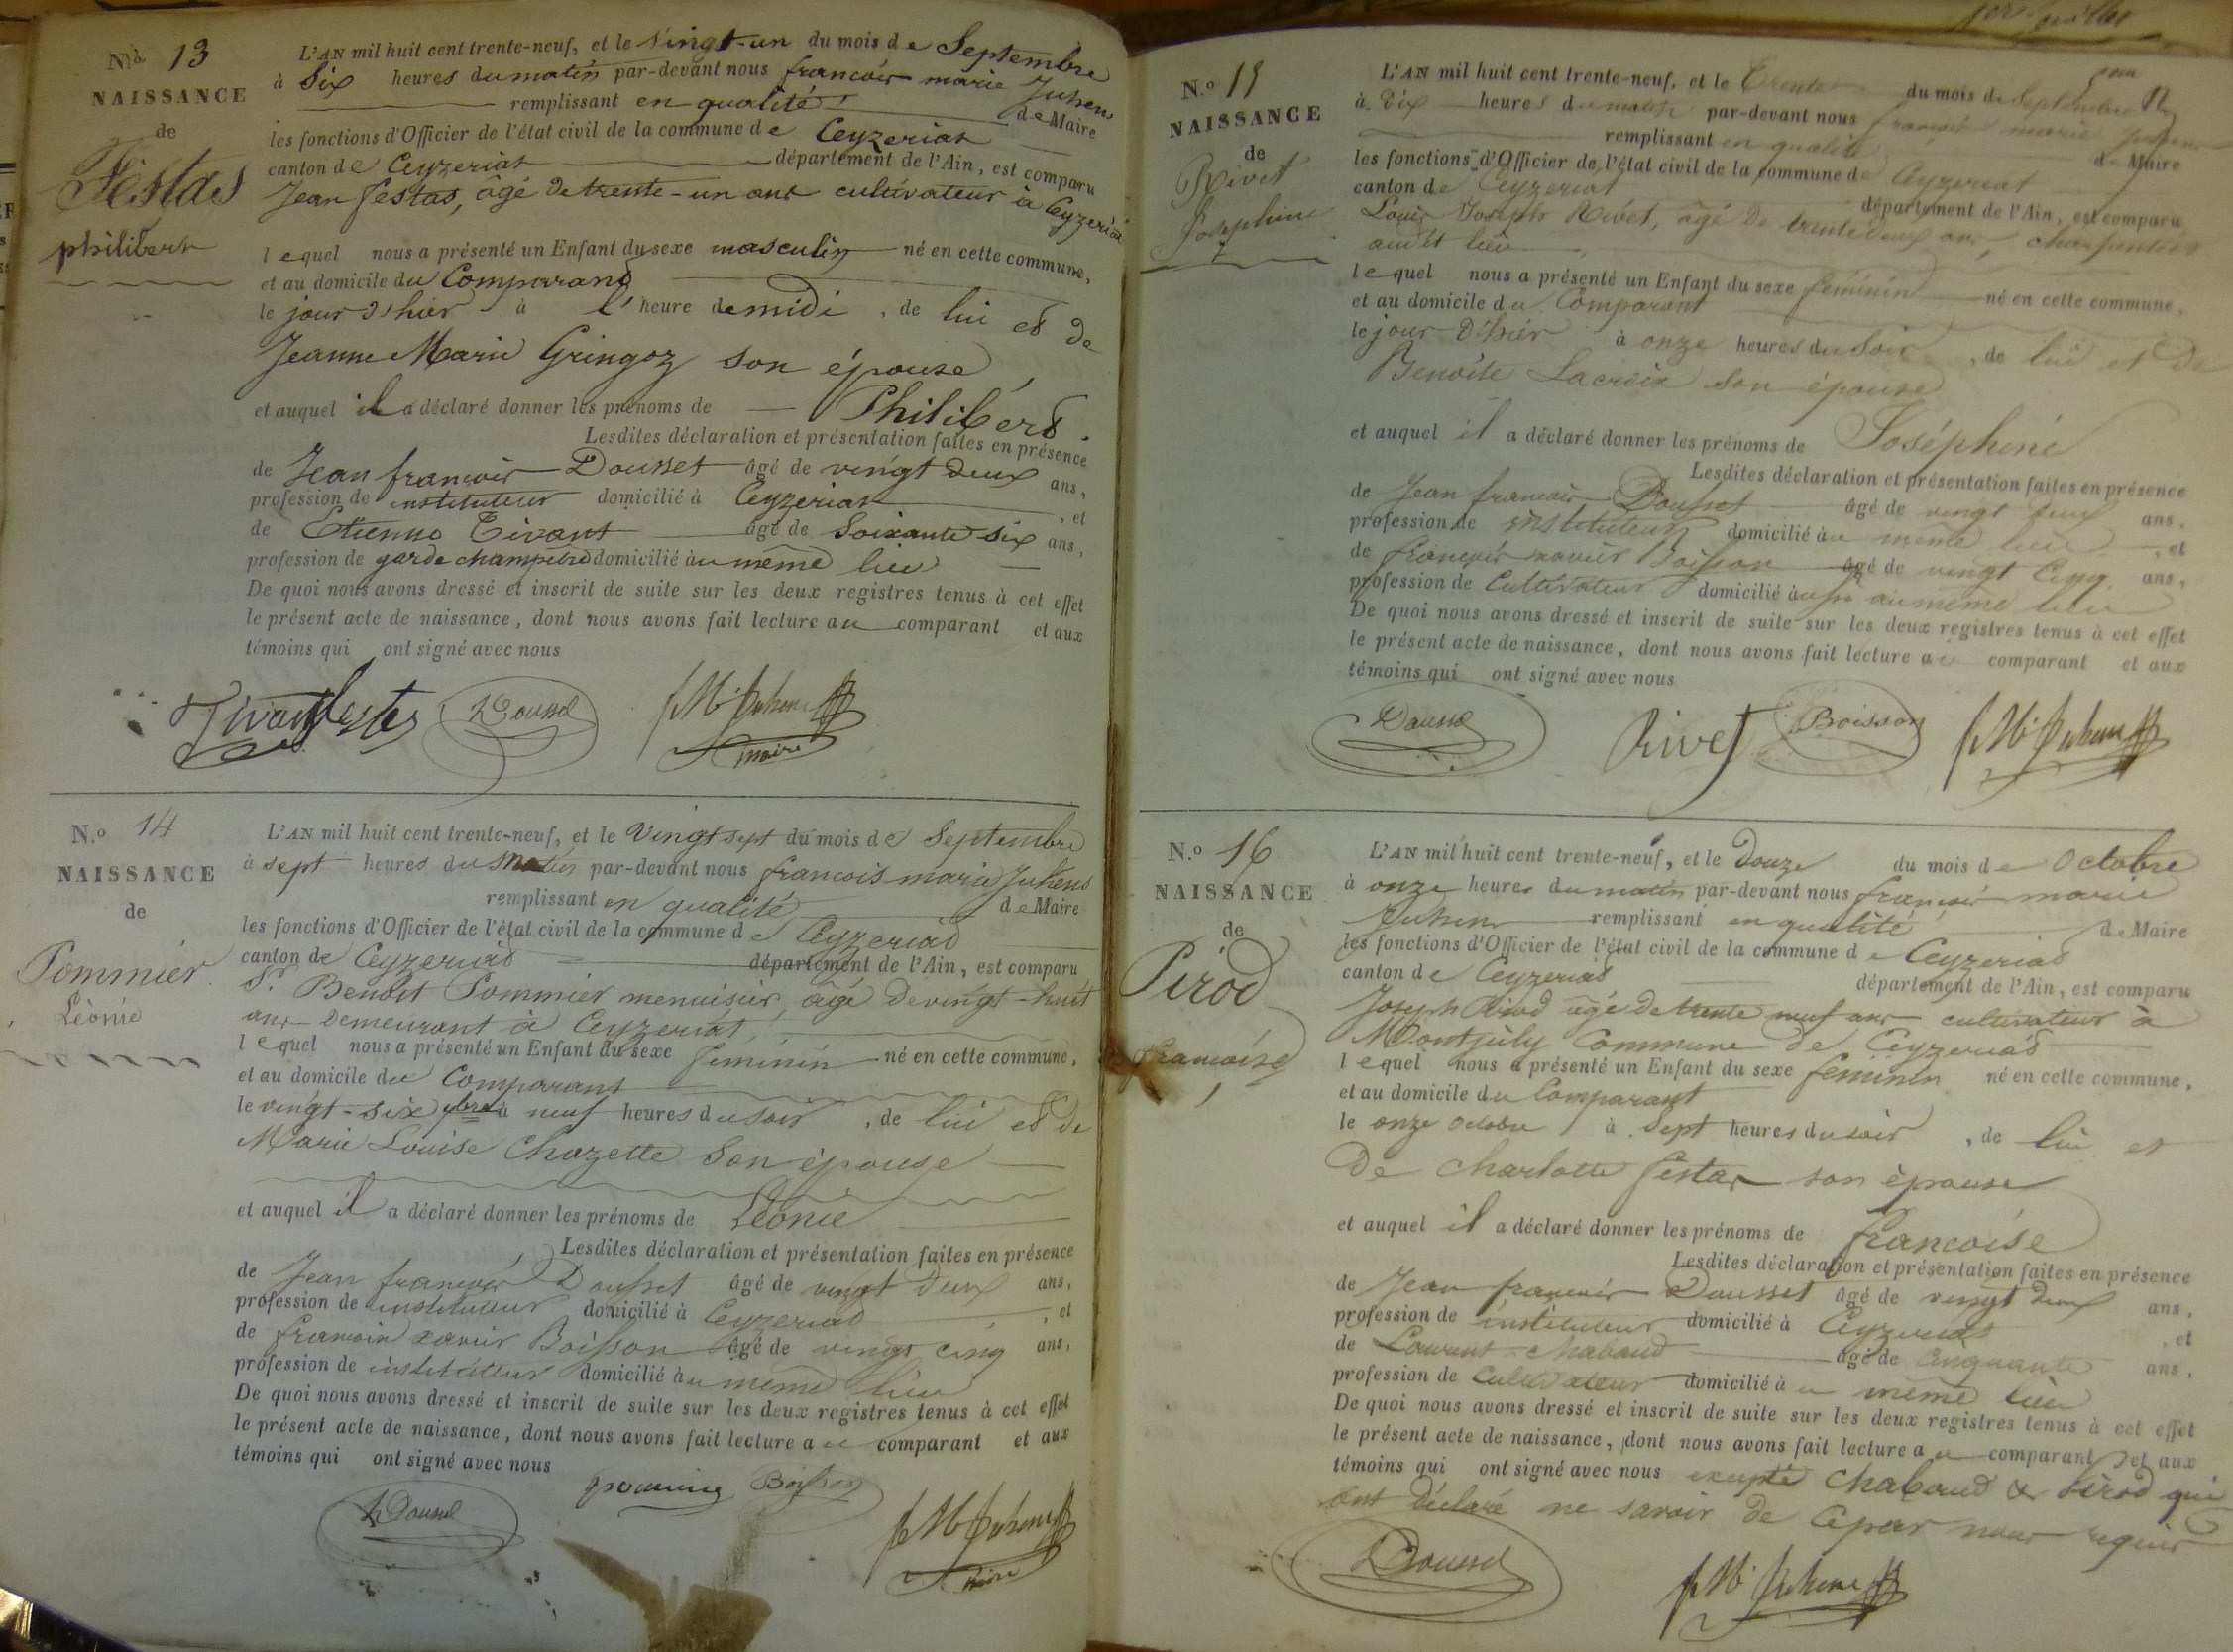 N.o 13
NAISSANCE
de
Festas
philibert
L'AN mil huit cent trente-neuf, et le vingt-un du mois de Septembre
à Six heures du matin par-devant nous françois marie Juhens
remplissant en qualité de Maire
les fonctions d'Officier de l'état civil de la commune de Ceyzeriat
canton de Ceyzeriat département de l'Ain, est comparu
Jean festas, âgé de trente-un ans cultivateur à Ceyzeriat
lequel nous a présenté un Enfant du sexe masculin né en cette commune,
et au domicile du Comparant
le jour d'hier à l'heure de midi, de lui et de
Jeanne Marie Gringoz son épouse,
et auquel il a déclaré donner les prénoms de Philibert.
Lesdites déclaration et présentation faites en présence
de Jean françois Dousset âgé de vingt deux ans,
profession de instituteur domicilié à Ceyzeriat, et
de Etienne Tivant âgé de Soixante six ans,
profession de garde champêtre domicilié au même lieu
De quoi nous avons dressé et inscrit de suite sur les deux registres tenus à cet effet
le présent acte de naissance, dont nous avons fait lecture au comparant et aux
témoins qui ont signé avec nous
Tivant festas Dousset f M Juhens
maire
N.o 14
NAISSANCE
de
Pommier
Léonie
L'AN mil huit cent trente-neuf, et le Vingt sept du mois de Septembre
à sept heures du matin par-devant nous francois marie Juhens
remplissant en qualité de Maire
les fonctions d'Officier de l'état civil de la commune de Ceyzeriat
canton de Ceyzeriat département de l'Ain, est comparu
Sr. Benoit Pommier menuisier, âgé de vingt-huit
ans demeurant à Ceyzeriat
lequel nous a présenté un Enfant du sexe féminin né en cette commune,
et au domicile du Comparant
le vingt-six 7bre à neuf heures du soir, de lui et de
Marie Louise Chozette son épouse
et auquel il a déclaré donner les prénoms de Léonie
Lesdites déclaration et présentation faites en présence
de Jean françois Dousset âgé de vingt deux ans,
profession de instituteur domicilié à Ceyzeriat, et
de françois xavier Boisson âgé de vingt cinq ans,
profession de instituteur domicilié au même lieu
De quoi nous avons dressé et inscrit de suite sur les deux registres tenus à cet effet
le présent acte de naissance, dont nous avons fait lecture au comparant et aux
témoins qui ont signé avec nous
Dousset Boisson f M Juhens
maire
N.o 15
NAISSANCE
de
Rivet
Joséphine
L'AN mil huit cent trente-neuf, et le trente du mois de Septembre
à Dix heures du matin par-devant nous françois marie Juhens
remplissant en qualité de Maire
les fonctions d'Officier de l'état civil de la commune de Ceyzeriat
canton de Ceyzeriat département de l'Ain, est comparu
Louis Joseph Rivet, âgé de trente deux ans, charpentier
audit lieu
lequel nous a présenté un Enfant du sexe féminin né en cette commune,
et au domicile du Comparant
le jour d'hier à onze heures du soir, de lui et de
Benoîte Lacroix son épouse
et auquel il a déclaré donner les prénoms de Joséphine
Lesdites déclaration et présentation faites en présence
de Jean françois Dousset âgé de vingt deux ans,
profession de instituteur domicilié au même lieu, et
de françois xavier Boisson âgé de vingt cinq ans,
profession de Cultivateur domicilié au même lieu
De quoi nous avons dressé et inscrit de suite sur les deux registres tenus à cet effet
le présent acte de naissance, dont nous avons fait lecture au comparant et aux
témoins qui ont signé avec nous
Dousset Rivet Boisson f M Juhens
N.o 16
NAISSANCE
de
Pirod
françoise
L'AN mil huit cent trente-neuf, et le Douze du mois de Octobre
à onze heures du matin par-devant nous françois marie
Juhens remplissant en qualité de Maire
les fonctions d'Officier de l'état civil de la commune de Ceyzeriat
canton de Ceyzeriat département de l'Ain, est comparu
Joseph Pirod âgé de trente neuf ans cultivateur à
Montjuly Commune de Ceyzeriat
lequel nous a présenté un Enfant du sexe féminin né en cette commune,
et au domicile du Comparant
le onze octobre à sept heures du soir, de lui et
De Charlotte festas son épouse
et auquel il a déclaré donner les prénoms de françoise
Lesdites déclaration et présentation faites en présence
de Jean françois Dousset âgé de vingt deux ans,
profession de instituteur domicilié à Ceyzeriat, et
de Laurent Chabaud âgé de Cinquante ans,
profession de Cultivateur domicilié au même lieu
De quoi nous avons dressé et inscrit de suite sur les deux registres tenus à cet effet
le présent acte de naissance, dont nous avons fait lecture au comparant et aux
témoins qui ont signé avec nous excepté Chabaud & Pirod qui
ont déclaré ne savoir de ce par nous requis
Dousset f M Juhens